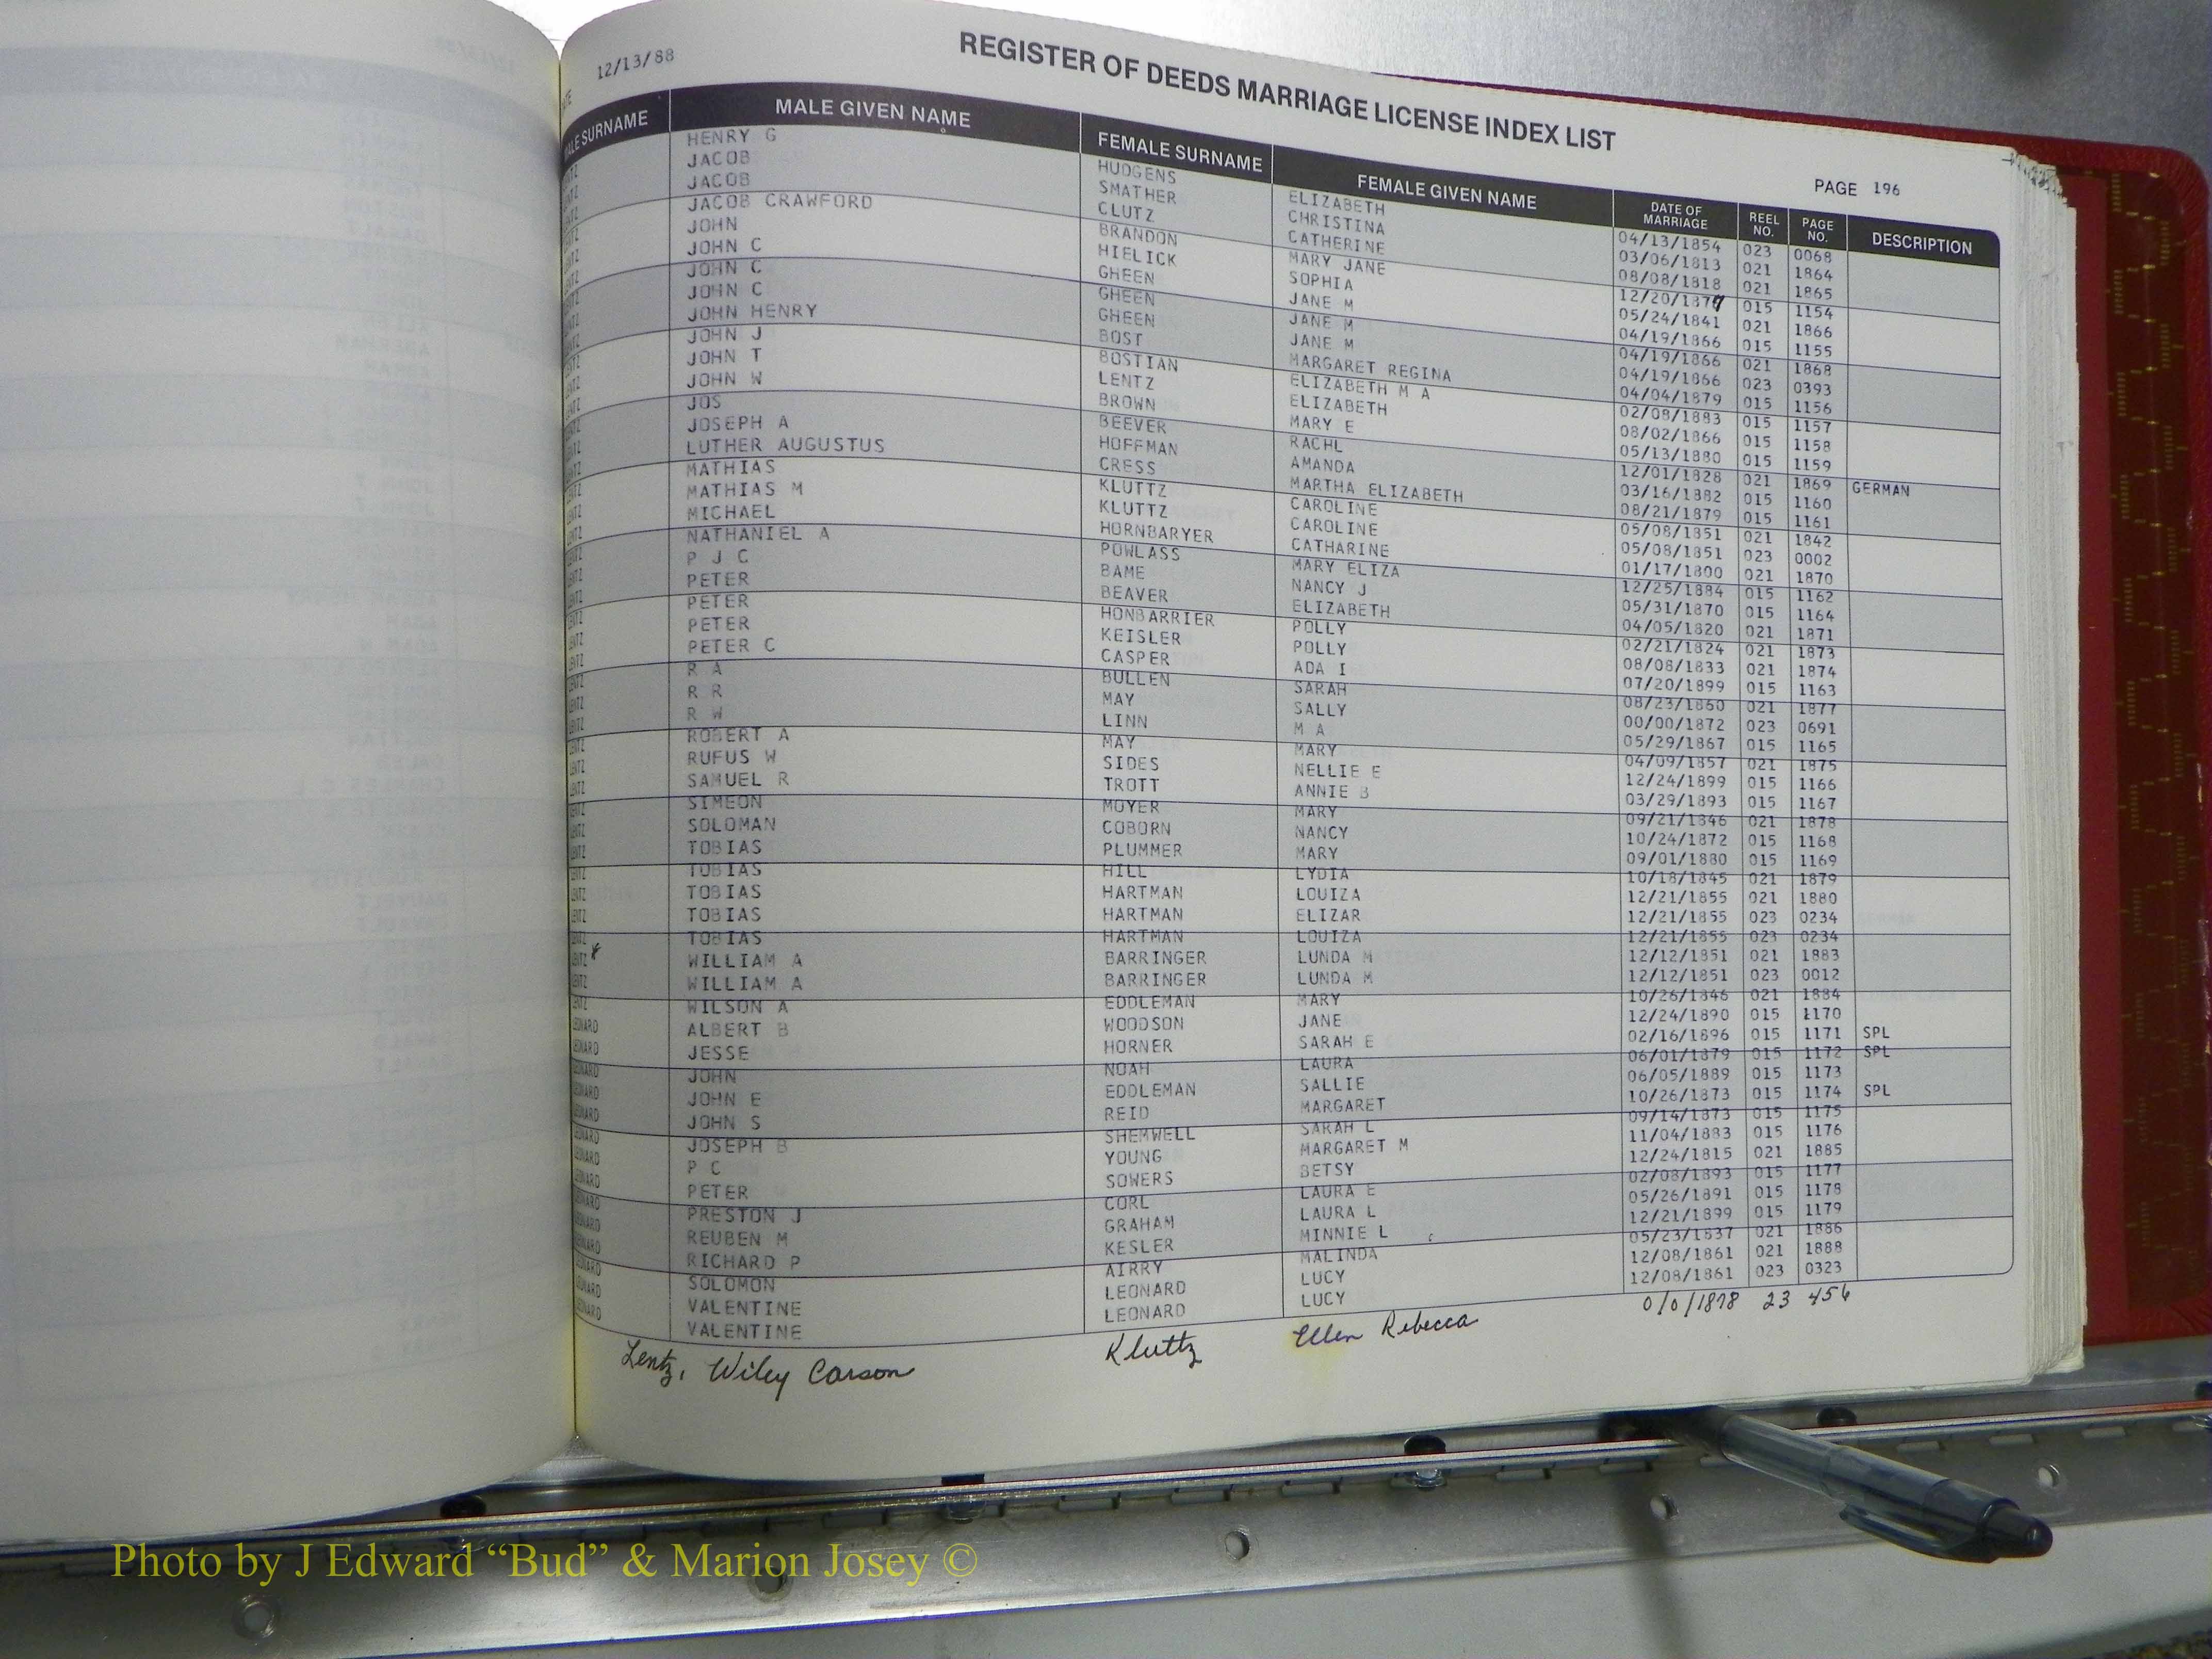 12/13/88
REGISTER OF DEEDS MARRIAGE LICENSE INDEX LIST
PAGE 196
MALE SURNAME MALE GIVEN NAME FEMALE SURNAME FEMALE GIVEN NAME DATE OF MARRIAGE REEL NO. PAGE NO. DESCRIPTION
LENTZ HENRY G HUDGENS ELIZABETH 04/13/1854 023 0068
LENTZ JACOB SMATHER CHRISTINA 03/06/1813 021 1864
LENTZ JACOB CLUTZ CATHERINE 08/08/1818 021 1865
LENTZ JACOB CRAWFORD BRANDON MARY JANE 12/20/1877 015 1154
LENTZ JOHN HIELICK SOPHIA 05/24/1841 021 1866
LENTZ JOHN C GHEEN JANE M 04/19/1866 015 1155
LENTZ JOHN C GHEEN JANE M 04/19/1866 021 1868
LENTZ JOHN C GHEEN JANE M 04/19/1866 023 0393
LENTZ JOHN HENRY BOST MARGARET REGINA 04/04/1879 015 1156
LENTZ JOHN J BOSTIAN ELIZABETH M A 02/08/1883 015 1157
LENTZ JOHN T LENTZ ELIZABETH 08/02/1866 015 1158
LENTZ JOHN W BROWN MARY E 05/13/1880 015 1159
LENTZ JOS BEEVER RACHL 12/01/1828 021 1869 GERMAN
LENTZ JOSEPH A HOFFMAN AMANDA 03/16/1882 015 1160
LENTZ LUTHER AUGUSTUS CRESS MARTHA ELIZABETH 08/21/1879 015 1161
LENTZ MATHIAS KLUTTZ CAROLINE 05/08/1851 021 1842
LENTZ MATHIAS M KLUTTZ CAROLINE 05/08/1851 023 0002
LENTZ MICHAEL HORNBARYER CATHARINE 01/17/1800 021 1870
LENTZ NATHANIEL A POWLASS MARY ELIZA 12/25/1884 015 1162
LENTZ P J C BAME NANCY J 05/31/1870 015 1164
LENTZ PETER BEAVER ELIZABETH 04/05/1820 021 1871
LENTZ PETER HONBARRIER POLLY 02/21/1824 021 1873
LENTZ PETER KEISLER POLLY 08/08/1833 021 1874
LENTZ PETER C CASPER ADA I 07/20/1899 015 1163
LENTZ R A BULLEN SARAH 08/23/1860 021 1877
LENTZ R R MAY SALLY 00/00/1872 023 0691
LENTZ R W LINN M A 05/29/1867 015 1165
LENTZ ROBERT A MAY MARY 04/09/1857 021 1875
LENTZ RUFUS W SIDES NELLIE E 12/24/1899 015 1166
LENTZ SAMUEL R TROTT ANNIE B 03/29/1893 015 1167
LENTZ SIMEON MOYER MARY 09/21/1846 021 1878
LENTZ SOLOMAN COBORN NANCY 10/24/1872 015 1168
LENTZ TOBIAS PLUMMER MARY 09/01/1880 015 1169
LENTZ TOBIAS HILL LYDIA 10/18/1845 021 1879
LENTZ TOBIAS HARTMAN LOUIZA 12/21/1855 021 1880
LENTZ TOBIAS HARTMAN ELIZAR 12/21/1855 023 0234
LENTZ TOBIAS HARTMAN LOUIZA 12/21/1855 023 0234
LENTZ WILLIAM A BARRINGER LUNDA M 12/12/1851 021 1883
LENTZ WILLIAM A BARRINGER LUNDA M 12/12/1851 023 0012
LENTZ WILSON A EDDLEMAN MARY 10/26/1846 021 1884
LEONARD ALBERT B WOODSON JANE 12/24/1890 015 1170
LEONARD JESSE HORNER SARAH E 02/16/1896 015 1171 SPL
LEONARD JOHN NOAH LAURA 06/01/1879 015 1172 SPL
LEONARD JOHN E EDDLEMAN SALLIE 06/05/1889 015 1173
LEONARD JOHN S REID MARGARET 10/26/1873 015 1174 SPL
LEONARD JOSEPH B SHEMWELL SARAH L 09/14/1873 015 1175
LEONARD P C YOUNG MARGARET M 11/04/1883 015 1176
LEONARD PETER SOWERS BETSY 12/24/1815 021 1885
LEONARD PRESTON J CORL LAURA E 02/08/1893 015 1177
LEONARD REUBEN M GRAHAM LAURA L 05/26/1891 015 1178
LEONARD RICHARD P KESLER MINNIE L 12/21/1899 015 1179
LEONARD SOLOMON AIRRY MALINDA 05/23/1837 021 1886
LEONARD VALENTINE LEONARD LUCY 12/08/1861 021 1888
LEONARD VALENTINE LEONARD LUCY 12/08/1861 023 0323
Lentz, Wiley Carson Kluttz Ellen Rebecca 0/0/1878 23 456
Photo by J Edward “Bud” & Marion Josey ©